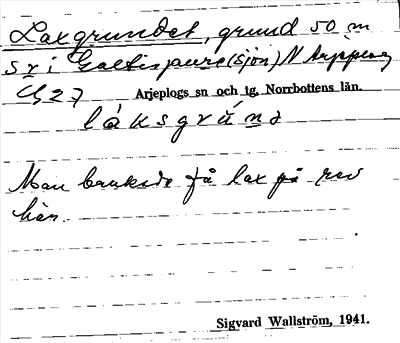 Laxgrundet, grund 50 m
sv i Galtisjaure (sjön) N Arjeplog
Arjeplogs sn och tg, Norrbottens län.
láksgrúnd
Man brukade få lax på rev
här.
Sigvard Wallström, 1941.